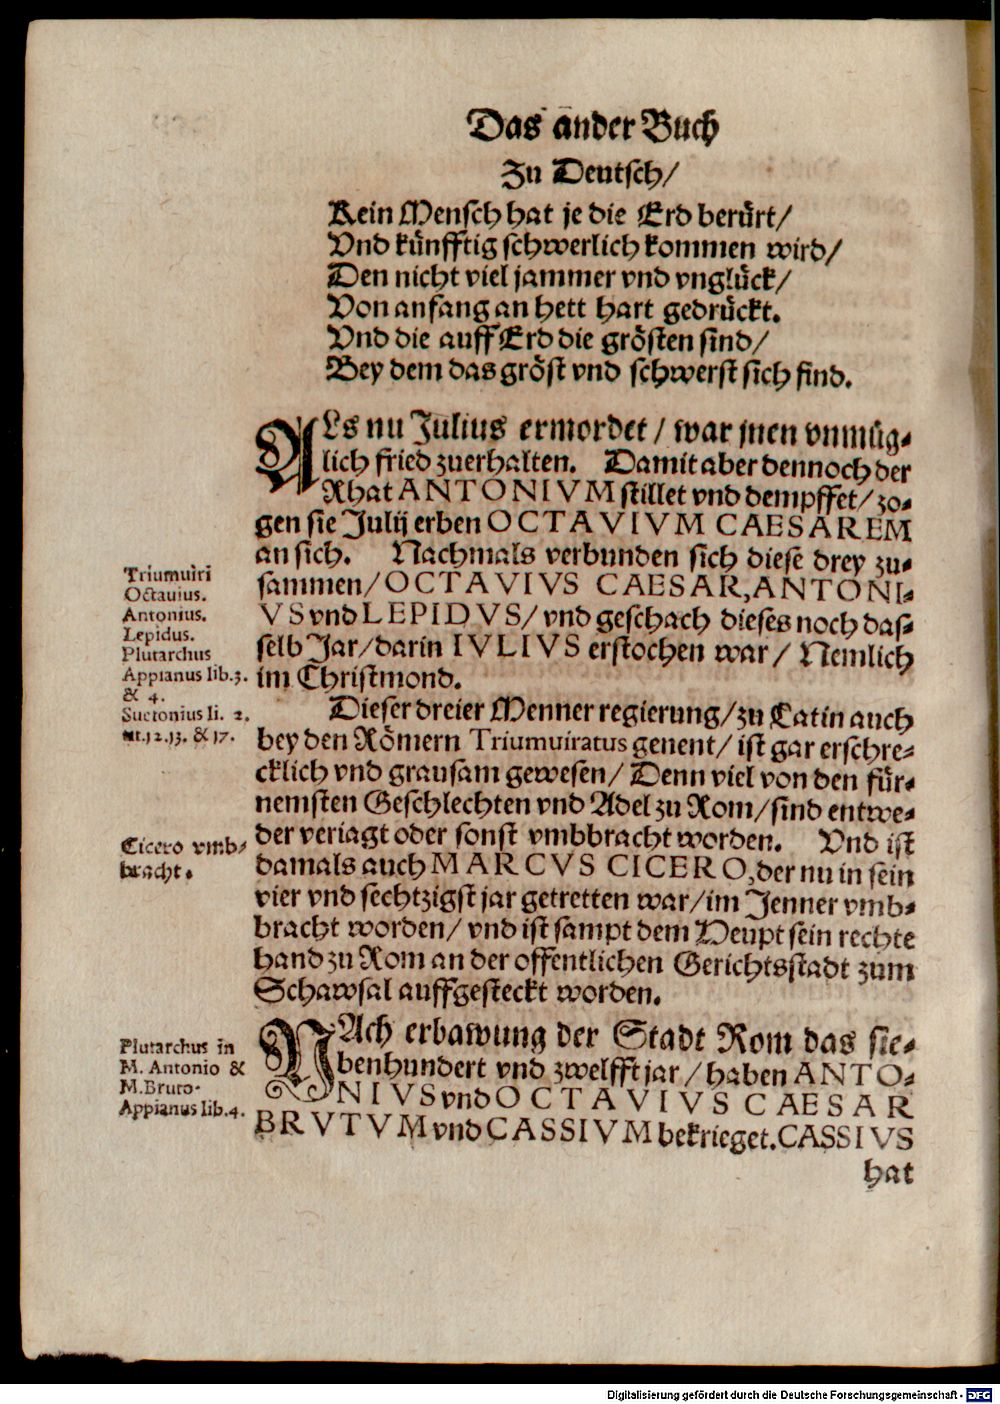 Das ander Buch
Zu Deutsch/
Kein Mensch hat je die Erd berürt/
Vnd künfftig schwerlich kommen wird/
Den nicht viel jammer vnd vnglück/
Von anfang an hett hart gedrückt.
Vnd die auff Erd die grösten sind/
Bey dem das gröst vnd schwerst sich find.
ALs nu Julius ermordet / war jnen vnmüg-
lich fried zuerhalten. Damit aber dennoch der
Rhat ANTONIVM stillet vnd dempffet/ zo-
gen sie Julij erben OCTAVIVM CAESAREM
an sich. Nachmals verbunden sich diese drey zu-
sammen/ OCTAVIVS CAESAR, ANTONI-
VS vnd LEPIDVS/ vnd geschach dieses noch das-
selb Jar/ darin IVLIVS erstochen war/ Nemlich
im Christmond.
Triumuiri
Octauius.
Antonius.
Lepidus.
Plutarchus
Appianus lib.3.
& 4.
Suetonius li. 2.
nt.12.13. & 17.
Dieser dreier Menner regierung/ zu Latin auch
bey den Römern Triumuiratus genent/ ist gar erschre-
cklich vnd grausam gewesen/ Denn viel von den für-
nemsten Geschlechten vnd Adel zu Rom/ sind entwe-
der veriagt oder sonst vmbbracht worden. Vnd ist
damals auch MARCVS CICERO, der nu in sein
vier vnd sechtzigst jar getretten war/ im Jenner vmb-
bracht worden/ vnd ist sampt dem Heupt sein rechte
hand zu Rom an der offentlichen Gerichtsstadt zum
Schawsal auffgesteckt worden.
Cicero vmb-
bracht.
NAch erbawung der Stadt Rom das sie-
benhundert vnd zwelfft jar / haben ANTO-
NIVS vnd OCTAVIVS CAESAR
BRVTVM vnd CASSIVM bekrieget. CASSIVS
hat
Plutarchus in
M. Antonio &
M. Bruto.
Appianus lib.4.
Digitalisierung gefördert durch die Deutsche Forschungsgemeinschaft - DFG